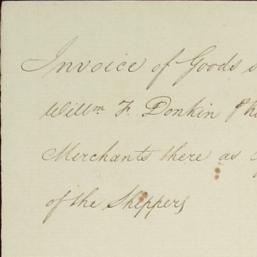 Invoice of Goods
Willm F. Donkin
Merchants there as
of the Shippers